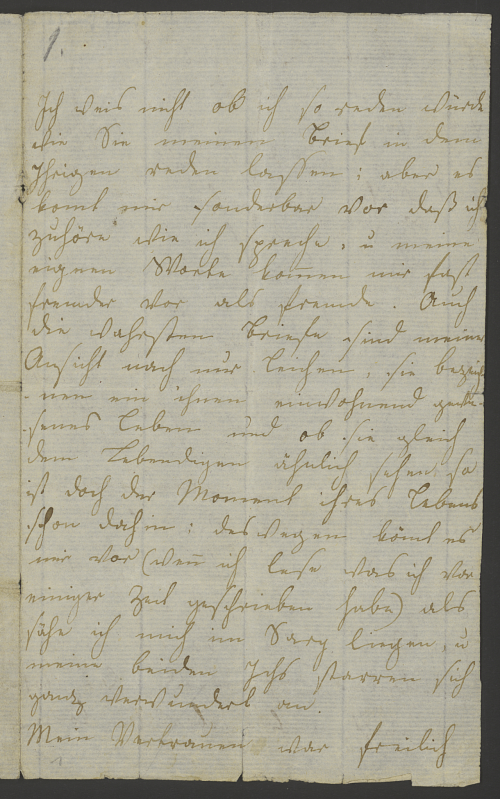 1.
Ich weis nicht ob ich so reden würde
wie Sie meinen Brief in dem
Ihrigen reden lassen; aber es
komt mir sonderbar vor daß ich
zuhöre wie ich spreche, u meine
eignen Worte kommen mir fast
fremder vor als fremde. Auch
die wahrsten Briefe sind meiner
Ansicht nach nur Leichen, sie bezeich-
-nen ein ihnen einwohnend gewe-
-senes Leben und ob sie gleich
dem Lebendigen ähnlich sehen, so
ist doch der Moment ihres Lebens
schon dahin: deswegen kömt es
mir vor (wenn ich lese was ich vor
einiger Zeit geschrieben habe) als
sähe ich mich im Sarg liegen, u
meine beiden Ichs starren sich
ganz verwundert an.
Mein Vertrauen war freilich